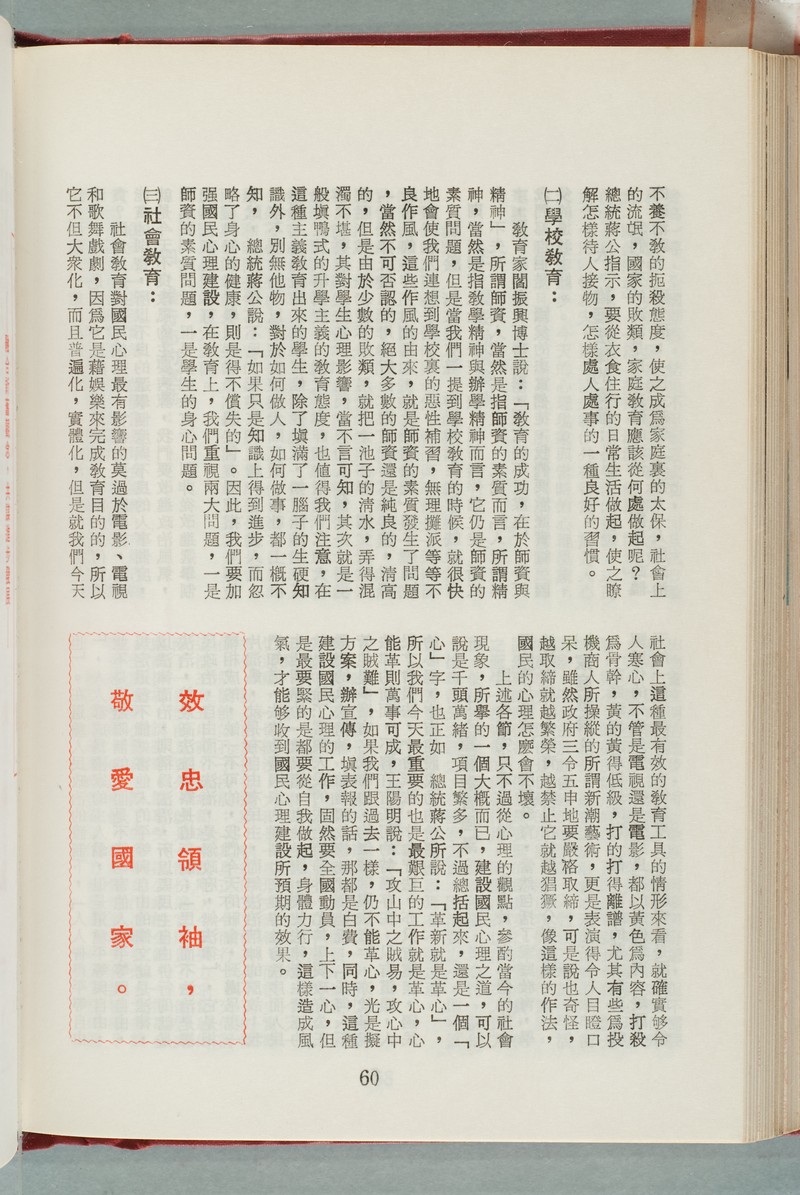 不養不敎的扼殺態度，使之成爲家庭裏的太保，社會上
的流氓，國家的敗類，家庭敎育應該從何處做起呢？
總統蔣公指示，要從衣食住行的日常生活做起，使之瞭
解怎樣待人接物，怎樣處人處事的一種良好的習慣。
㈡學校敎育：
敎育家閻振興博士說：「敎育的成功，在於師資與
精神」，所謂師資，當然是指師資的素質而言，所謂精
神，當然是指敎學精神與辦學精神而言，它仍是師資的
素質問題，但是當我們一提到學校敎育的時候，就很快
地會使我們連想到學校裏的惡性補習，無理攤派等等不
良作風，這些作風的由來，就是師資的素質發生了問題
，當然不可否認的，絕大多數的師資還是純良的，清高
的，但是由於少數的敗類，就把一池子的清水，弄得混
濁不堪，其對學生心理影響，當不言可知，其次就是一
般塡鴨式的升學主義的敎育態度，也値得我們注意，在
這種主義敎育出來的學生，除了塡滿了一腦子的生硬知
識外，別無他物，對於如何做人，如何做事，都一概不
知，　總統蔣公說：「如果只是知識上得到進步，而忽
略了身心的健康，則是得不償失的」。因此，我們要加
强國民心理建設，在敎育上，我們重視兩大問題，一是
師資的素質問題，一是學生的身心問題。
㈢社會敎育：
社會敎育對國民心理最有影響的莫過於電影、電視
和歌舞戲劇，因爲它是藉娛樂來完成敎育目的的，所以
它不但大衆化，而且普遍化，實體化，但是就我們今天
社會上這種最有效的敎育工具的情形來看，就確實够令
人寒心，不管是電視還是電影，都以黃色爲內容，打殺
爲骨幹，黃的黃得低級，打的打得離譜，尤其有些爲投
機商人所操縱的所謂新潮藝術，更是表演得令人目瞪口
呆，雖然政府三令五申地要嚴格取締，可是說也奇怪，
越取締就越繁榮，越禁止它就越猖獗，像這樣的作法，
國民的心理怎麽會不壞。
上述各節，只不過從心理的觀點，參酌當今的社會
現象，所舉的一個大概而已，建設國民心理之道，可以
說是千頭萬緒，項目繁多，不過總括起來，還是一個「
心」字，也正如　總統蔣公所說：「革新就是革心」，
所以我們今天最重要的也是最艱巨的工作就是革心，心
能革則萬事可成，王陽明說：「攻山中之賊易，攻心中
之賊難」，如果我們跟過去一樣，仍不能革心，光是擬
方案，辦宣傳，塡表報的話，那都是白費，同時，這種
建設國民心理的工作，固然要全國動員，上下一心，但
是最要緊的是都要從自我做起，身體力行，這樣造成風
氣，才能够收到國民心理建設所預期的效果。
效忠領袖，
敬愛國家。
60